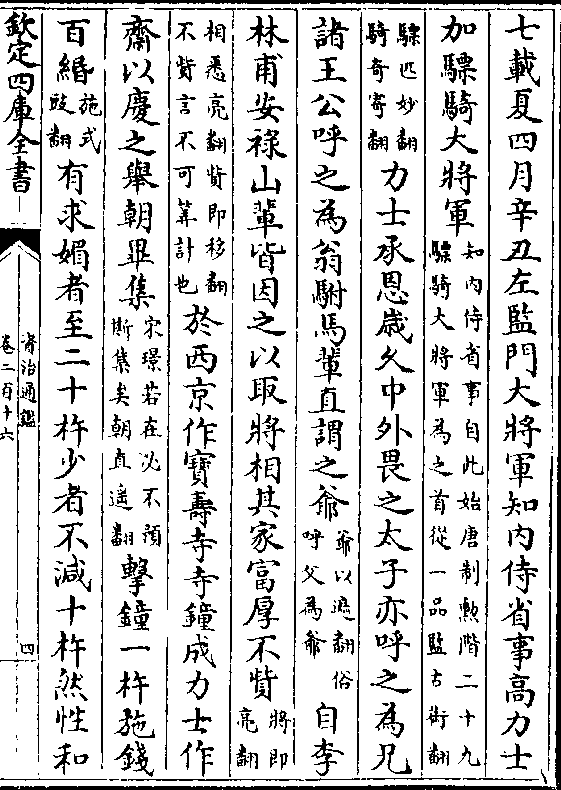 七載夏四月辛丑左監門大將軍知內侍省事高力士
加驃騎大將軍知內侍省事自此始唐制勲階二十九驃騎大將軍為之首從一品監古銜翻
驃匹妙翻騎奇寄翻力士承恩歲久中外畏之太子亦呼之為兄
諸王公呼之為翁駙馬輩直謂之爺爺以遮翻俗呼父為爺自李
林甫安祿山輩皆因之以取將相其家富厚不貲將即亮翻
相悉亮翻貲即移翻不貲言不可筭計也於西京作寶壽寺寺鐘成力士作
齋以慶之舉朝畢集宋璟若在必不預斯集矣朝直遥翻擊鐘一杵施錢
百緡施式豉翻有求媚者至二十杵少者不減十杵然性和
欽定四庫全書
資治通鑑
卷二百十六
四